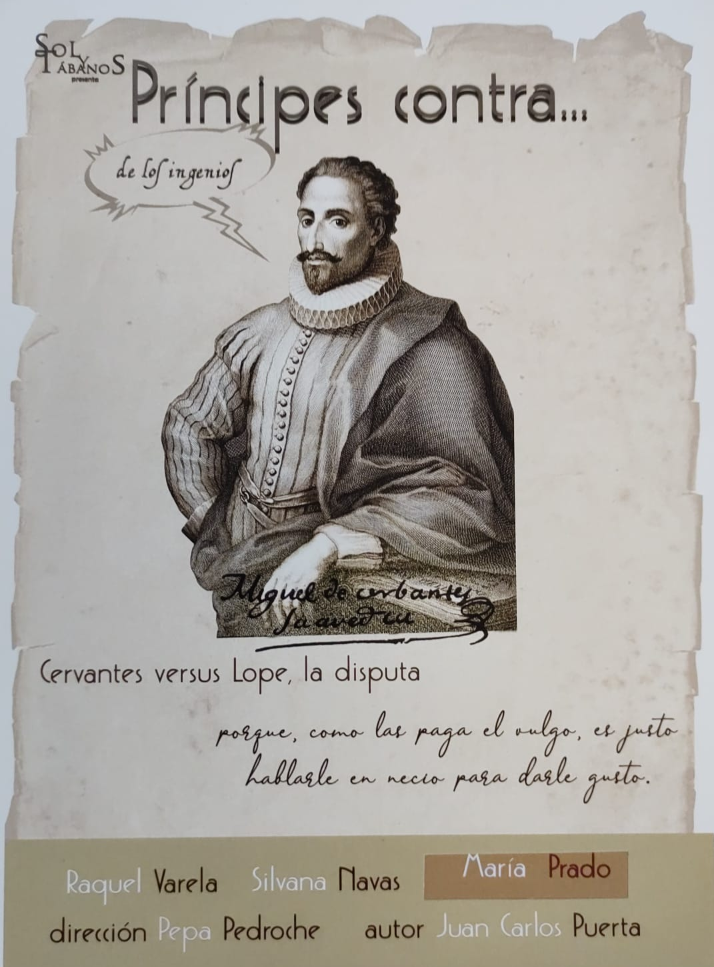 SOL Y
TÁBANOS
presenta
Príncipes contra...
de los ingenios
Miguel de cerbantes
Saavedra
Cervantes versus Lope, la disputa
porque, como las paga el vulgo, es justo
hablarle en necio para darle gusto.
Raquel Varela Silvana Navas María Prado
dirección Pepa Pedroche autor Juan Carlos Puerta